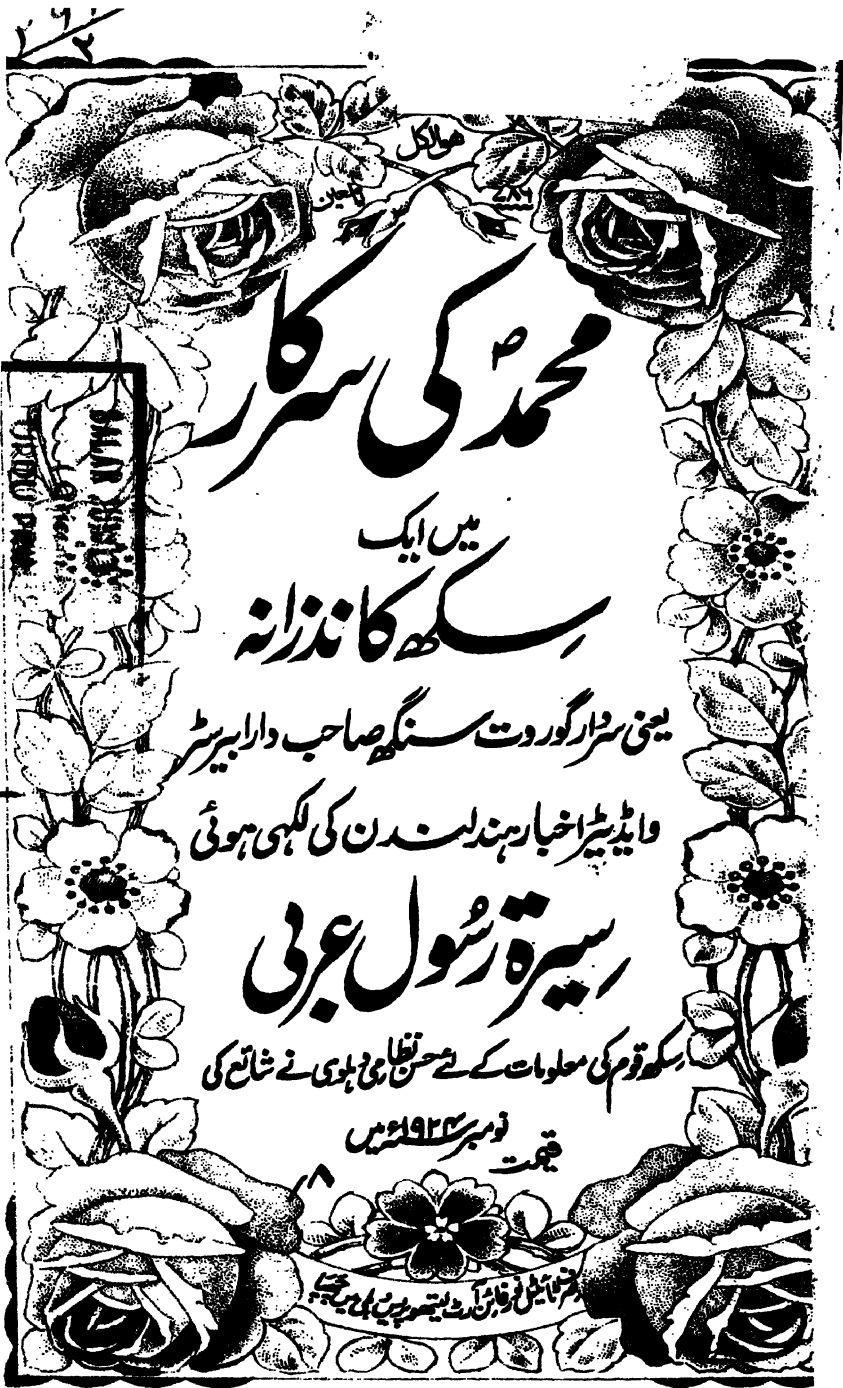 ھوالکل
۷۸۶
محمدؐ کی سرکار
میں ایک
سِکھ کا نذرانہ
یعنی سردار گوردت سنگھ صاحب دارا بیرسٹر
و ایڈیٹر اخبار ہند لندن کی لکھی ہوئی
سیرۃ رسُول عربی
سِکھ قوم کی معلومات کے لئے حسن نظامی دہلوی نے شائع کی
نومبر ۱۹۲۴ء میں
قیمت ۸؍
SALAR JUNG
URDU